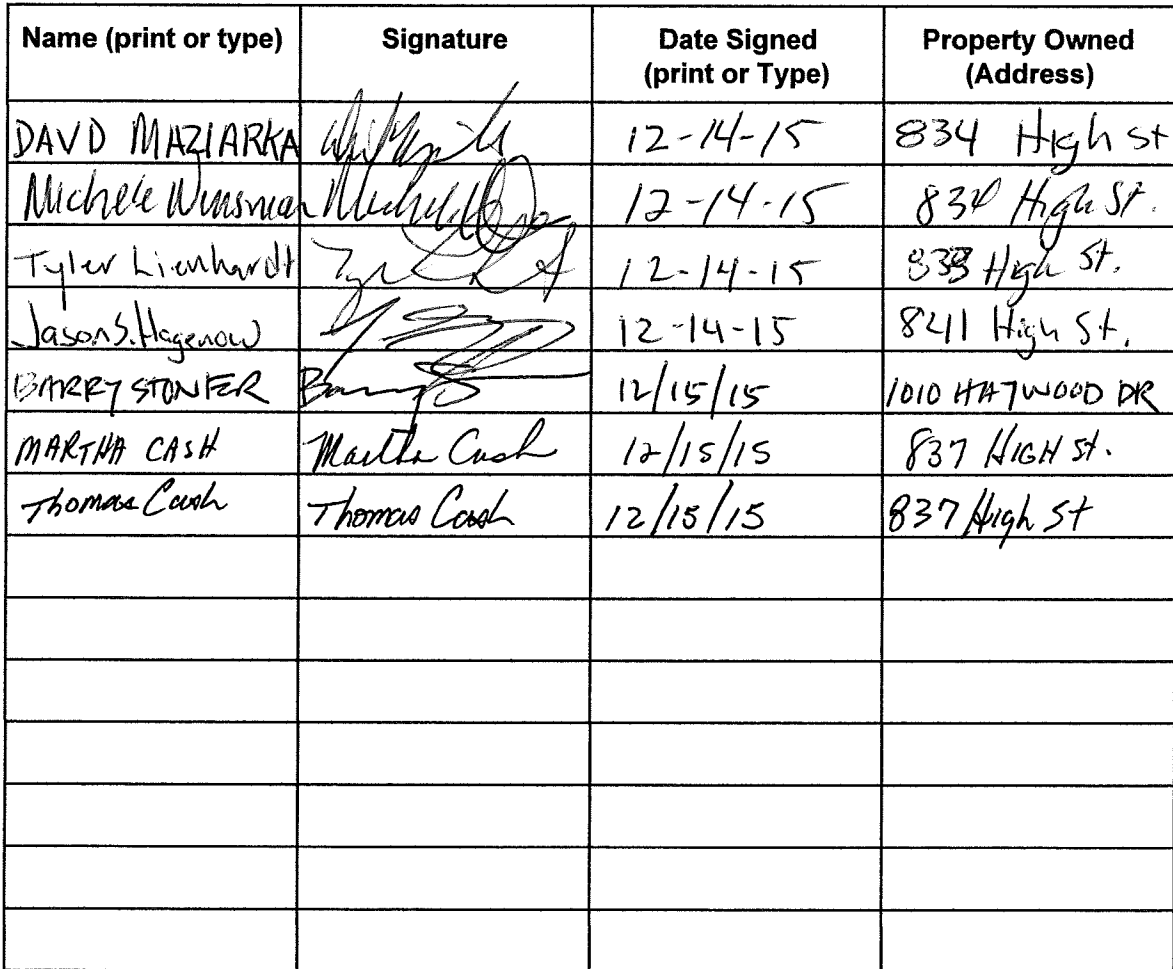 Name (print or type) Signature Date Signed (print or Type) Property Owned (Address)
DAVD MAZIARKA 12-14-15 834 High St
Michele 12-14-15 834 High St.
Tyler Lienhardt 12-14-15 833 High St.
Jason S. Hagenow 12-14-15 841 High St.
BARRY STONFER 12/15/15 1010 HAYWOOD DR
MARTHA CASH Martha Cash 12/15/15 837 HIGH St.
Thomas Cash Thomas Cash 12/15/15 837 High St